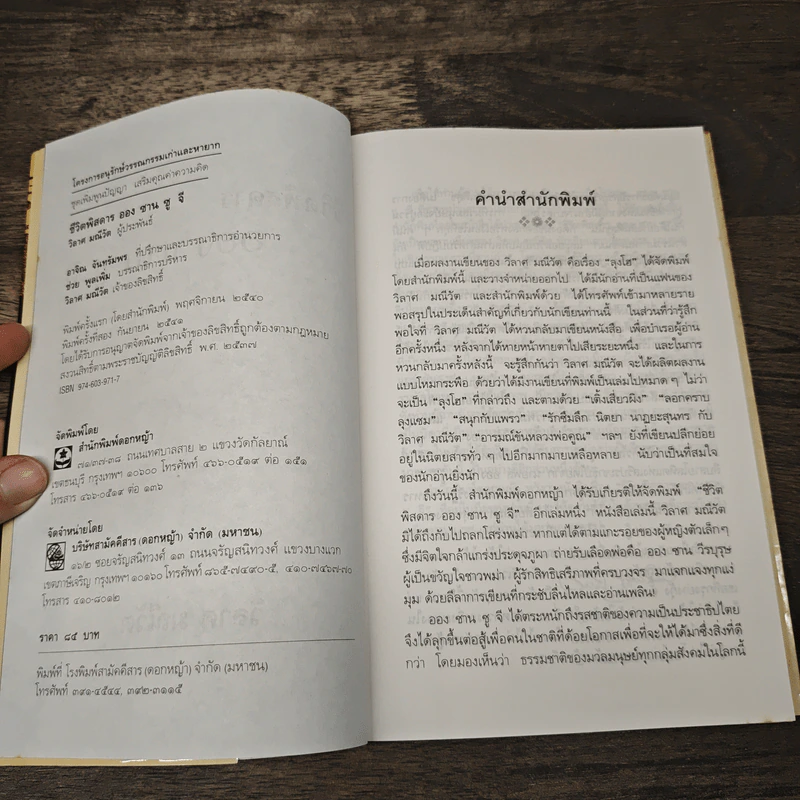 โครงการอนุรักษ์วรรณกรรมเก่าและหายาก
ชุดเพิ่มพูนปัญญา เสริมคุณค่าความคิด
ชีวิตพิสดาร ออง ซาน ซู จี
วิลาศ มณีวัต ผู้ประพันธ์
อาจิณ จันทรัมพร ที่ปรึกษาและบรรณาธิการอำนวยการ
ช่วย พูลเพิ่ม บรรณาธิการบริหาร
วิลาศ มณีวัต เจ้าของลิขสิทธิ์
พิมพ์ครั้งแรก (โดยสำนักพิมพ์) พฤศจิกายน ๒๕๔๐
พิมพ์ครั้งที่สอง กันยายน ๒๕๔๑
โดยได้รับการอนุญาตจัดพิมพ์จากเจ้าของลิขสิทธิ์ถูกต้องตามกฎหมาย
สงวนสิทธิ์ตามพระราชบัญญัติลิขสิทธิ์ พ.ศ. ๒๕๓๗
ISBN 974-603-971-7
จัดพิมพ์โดย
สำนักพิมพ์ดอกหญ้า
๗๑/๓๗-๓๘ ถนนเทศบาลสาย ๒ แขวงวัดกัลยาณ์
เขตธนบุรี กรุงเทพฯ ๑๐๖๐๐ โทรศัพท์ ๔๖๖-๐๕๑๙ ต่อ ๑๕๑
โทรสาร ๔๖๖-๐๕๑๙ ต่อ ๑๓๖
จัดจำหน่ายโดย
บริษัทสามัคคีสาร (ดอกหญ้า) จำกัด (มหาชน)
๑๖๒ ซอยจรัญสนิทวงศ์ ๑๓ ถนนจรัญสนิทวงศ์ แขวงบางแวก
เขตภาษีเจริญ กรุงเทพฯ ๑๐๑๖๐ โทรศัพท์ ๘๖๕-๗๔๙๐-๕, ๔๑๐-๗๔๖๗-๗๐
โทรสาร ๔๑๐-๘๐๑๒
ราคา ๘๕ บาท
พิมพ์ที่ โรงพิมพ์สามัคคีสาร (ดอกหญ้า) จำกัด (มหาชน)
โทรศัพท์ ๓๙๑-๔๕๔๔, ๓๙๒-๓๑๑๕
คำนำสำนักพิมพ์
เมื่อผลงานเขียนของ วิลาศ มณีวัต คือเรื่อง “ลุงโฮ” ได้จัดพิมพ์
โดยสำนักพิมพ์นี้ และวางจำหน่ายออกไป ได้มีนักอ่านที่เป็นแฟนของ
วิลาศ มณีวัต และสำนักพิมพ์ด้วย ได้โทรศัพท์เข้ามาหลายราย
พอสรุปในประเด็นสำคัญที่เกี่ยวกับนักเขียนท่านนี้ ในส่วนที่ว่ารู้สึก
พอใจที่ วิลาศ มณีวัต ได้หวนกลับมาเขียนหนังสือ เพื่อบำเรอผู้อ่าน
อีกครั้งหนึ่ง หลังจากได้หายหน้าหายตาไปเสียระยะหนึ่ง และในการ
หวนกลับมาครั้งหลังนี้ จะรู้สึกกันว่า วิลาศ มณีวัต จะได้ผลิตผลงาน
แบบโหมกระพือ ด้วยว่าได้มีงานเขียนที่พิมพ์เป็นเล่มไปหมาด ๆ ไม่ว่า
จะเป็น “ลุงโฮ” ที่กล่าวถึง และตามด้วย “เติ้งเสี่ยวผิง” “ลอกคราบ
ลุงแซม” “สนุกกับแพรว” “รักซึมลึก นิตยา นาฏยะสุนทร กับ
วิลาศ มณีวัต” “อารมณ์ขันหลวงพ่อคูณ” ฯลฯ ยังที่เขียนปลีกย่อย
อยู่ในนิตยสารทั่ว ๆ ไปอีกมากมายเหลือหลาย นับว่าเป็นที่สมใจ
ของนักอ่านยิ่งนัก
ถึงวันนี้ สำนักพิมพ์ดอกหญ้า ได้รับเกียรติให้จัดพิมพ์ “ชีวิต
พิสดาร ออง ซาน ซู จี” อีกเล่มหนึ่ง หนังสือเล่มนี้ วิลาศ มณีวัต
มิได้ถึงกับไปถลกโสร่งพม่า หากแต่ได้ตามแกะรอยของผู้หญิงตัวเล็กๆ
ซึ่งมีจิตใจกล้าแกร่งประดุจภูผา ถ่ายรับเลือดพ่อคือ ออง ซาน วีรบุรุษ
ผู้เป็นขวัญใจชาวพม่า ผู้รักสิทธิเสรีภาพที่ครบวงจร มาแจกแจงทุกแง่
มุม ด้วยลีลาการเขียนที่กระชับลื่นไหลและอ่านเพลิน!
ออง ซาน ซู จี ได้ตระหนักถึงรสชาติของความเป็นประชาธิปไตย
จึงได้ลุกขึ้นต่อสู้เพื่อคนในชาติที่ด้อยโอกาสเพื่อที่จะให้ได้มาซึ่งสิ่งที่ดี
กว่า โดยมองเห็นว่า ธรรมชาติของมวลมนุษย์ทุกกลุ่มสังคมในโลกนี้